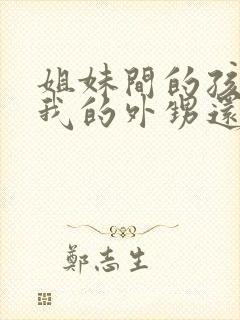 姐妹間的孩
我的外甥還
鄭志生